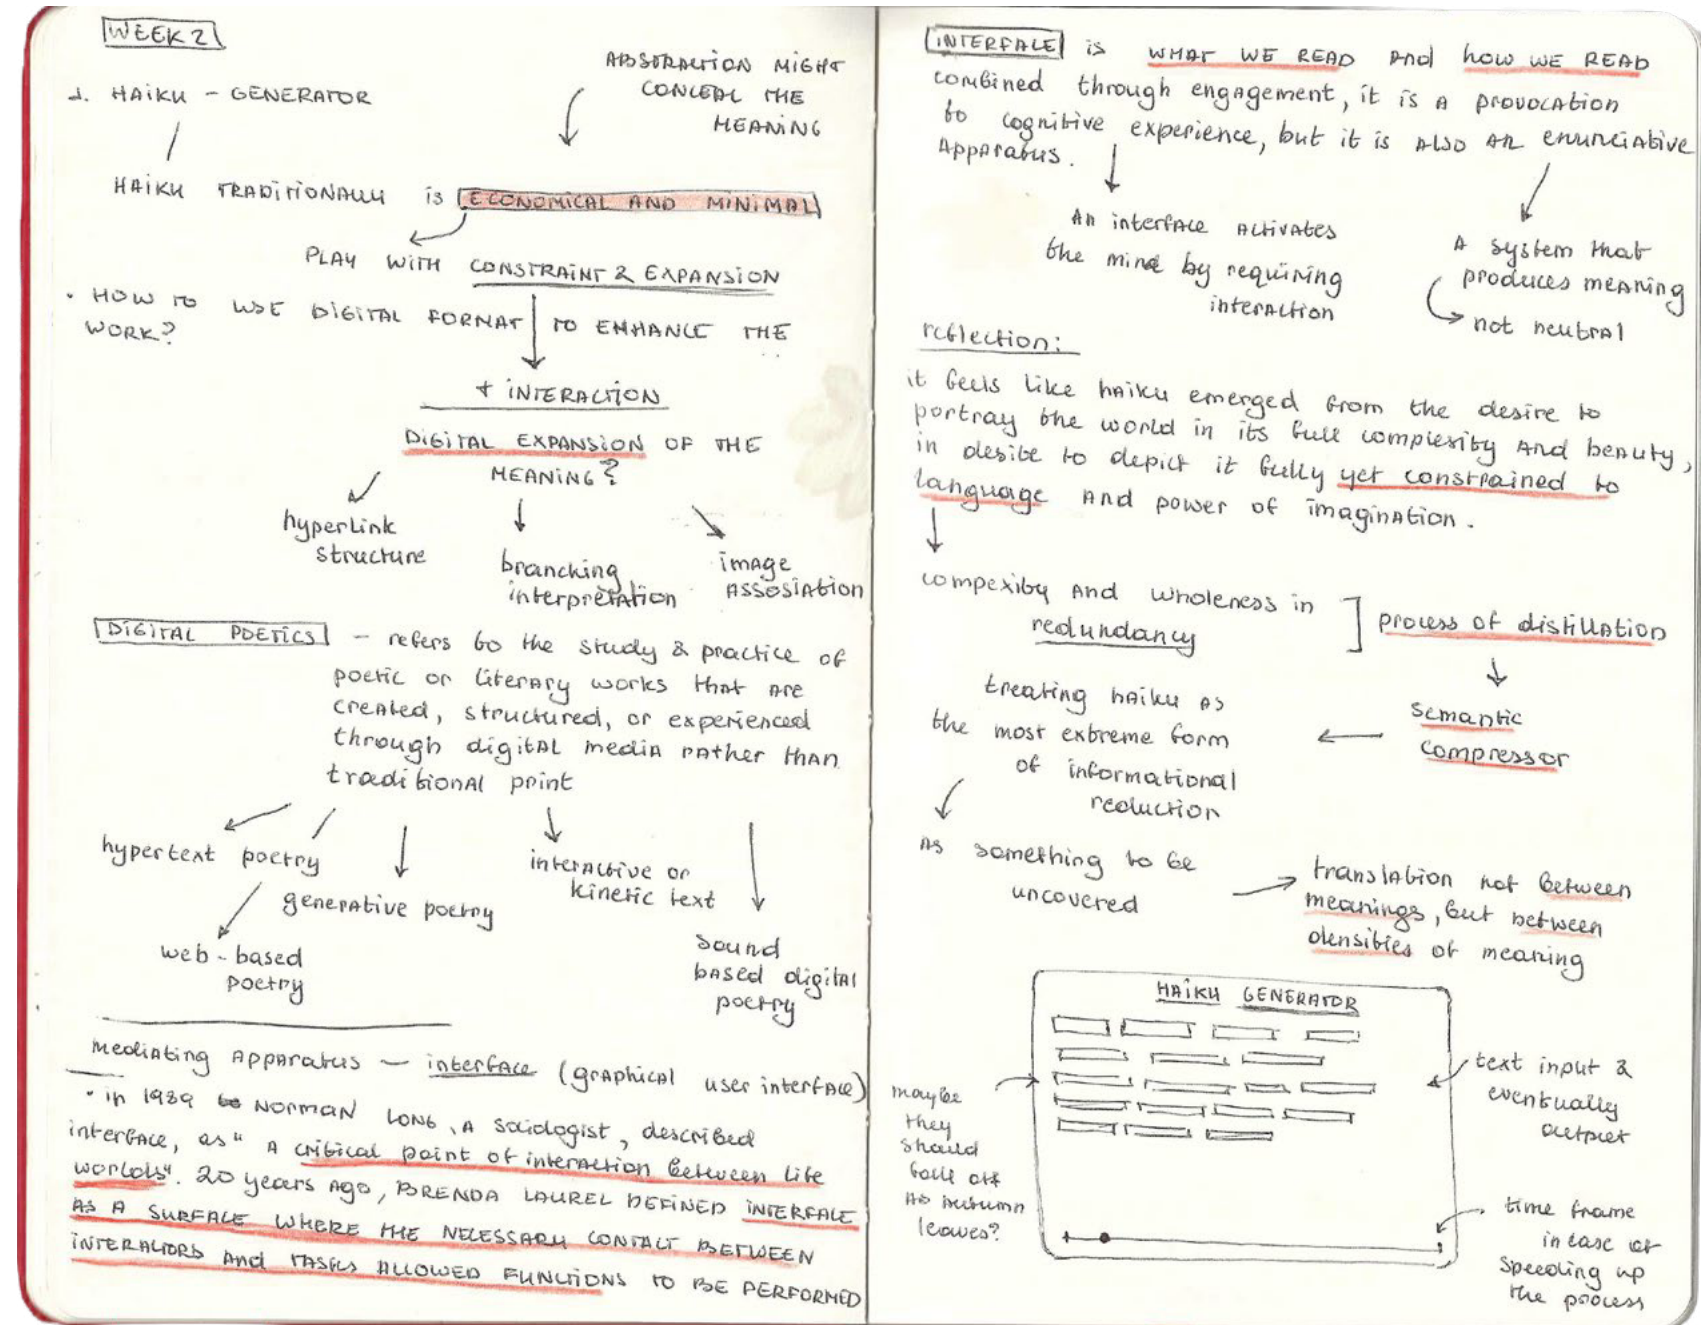 WEEK 2
1. HAIKU - GENERATOR
ABSTRACTION MIGHT
CONCEAL THE
MEANING
HAIKU TRADITIONALLY is ECONOMICAL AND MINIMAL
PLAY WITH CONSTRAINT & EXPANSION
• HOW TO USE DIGITAL FORMAT TO ENHANCE THE
WORK?
+ INTERACTION
DIGITAL EXPANSION OF THE
MEANING?
hyperlink
structure
branching
interpretation
image
assosiation
DIGITAL POETICS - refers to the study & practice of
poetic or literary works that are
created, structured, or experienced
through digital media rather than
traditional print
hypertext poetry
web-based
poetry
generative poetry
interactive or
kinetic text
sound
based digital
poetry
Mediating Apparatus — interface (graphical user interface)
• in 1989 NORMAN LONG, A sociologist, described
interface, as "A critical point of interaction between life
worlds". 20 years ago, BRENDA LAUREL DEFINED INTERFACE
AS A SURFACE WHERE THE NECESSARY CONTACT BETWEEN
INTERACTORS AND TASKS ALLOWED FUNCTIONS TO BE PERFORMED
INTERFACE is WHAT WE READ and how WE READ
combined through engagement, it is a provocation
to cognitive experience, but it is also an enunciative
Apparatus.
An interface activates
the mind by requiring
interaction
A system that
produces meaning
not neutral
reflection:
it feels like haiku emerged from the desire to
portray the world in its full complexity and beauty,
in desire to depict it fully yet constrained to
language and power of imagination.
compexity and wholeness in
redundancy
] process of distillation
semantic
compressor
treating haiku as
the most extreme form
of informational
reduction
As something to be
uncovered
translation not between
meanings, but between
densities of meaning
HAIKU GENERATOR
maybe
they
should
fall off
as autumn
leaves?
text input &
eventually
output
time frame
in case of
speeding up
the process